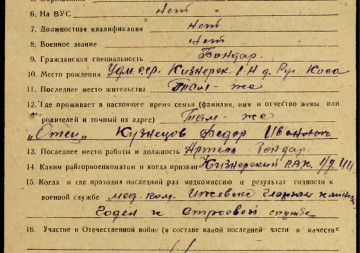 6. На ВУС нет
7. Должностная квалификация нет
8. Военное звание нет
9. Гражданская специальность Бондар.
10. Место рождения Удм. сср. Кизнерск. р-н д. Рус Коса
11. Последнее место жительства Там - же
12. Где проживает в настоящее время семья (фамилия, имя и отчество жены или
родителей и точный их адрес) Там - же
"Отец" Кузнецов Федор Иванович
13. Последнее место работы и должность Артель Бондар
14. Каким райгорвоенкоматом и когда призван Кизнерский РВК
15. Когда и где проходил последний раз медкомиссию и результат годности к
военной службе мед. ком. Ижевый
Годен к строевой службе
16. Участие в Отечественной войне (в составе какой последней части в качест